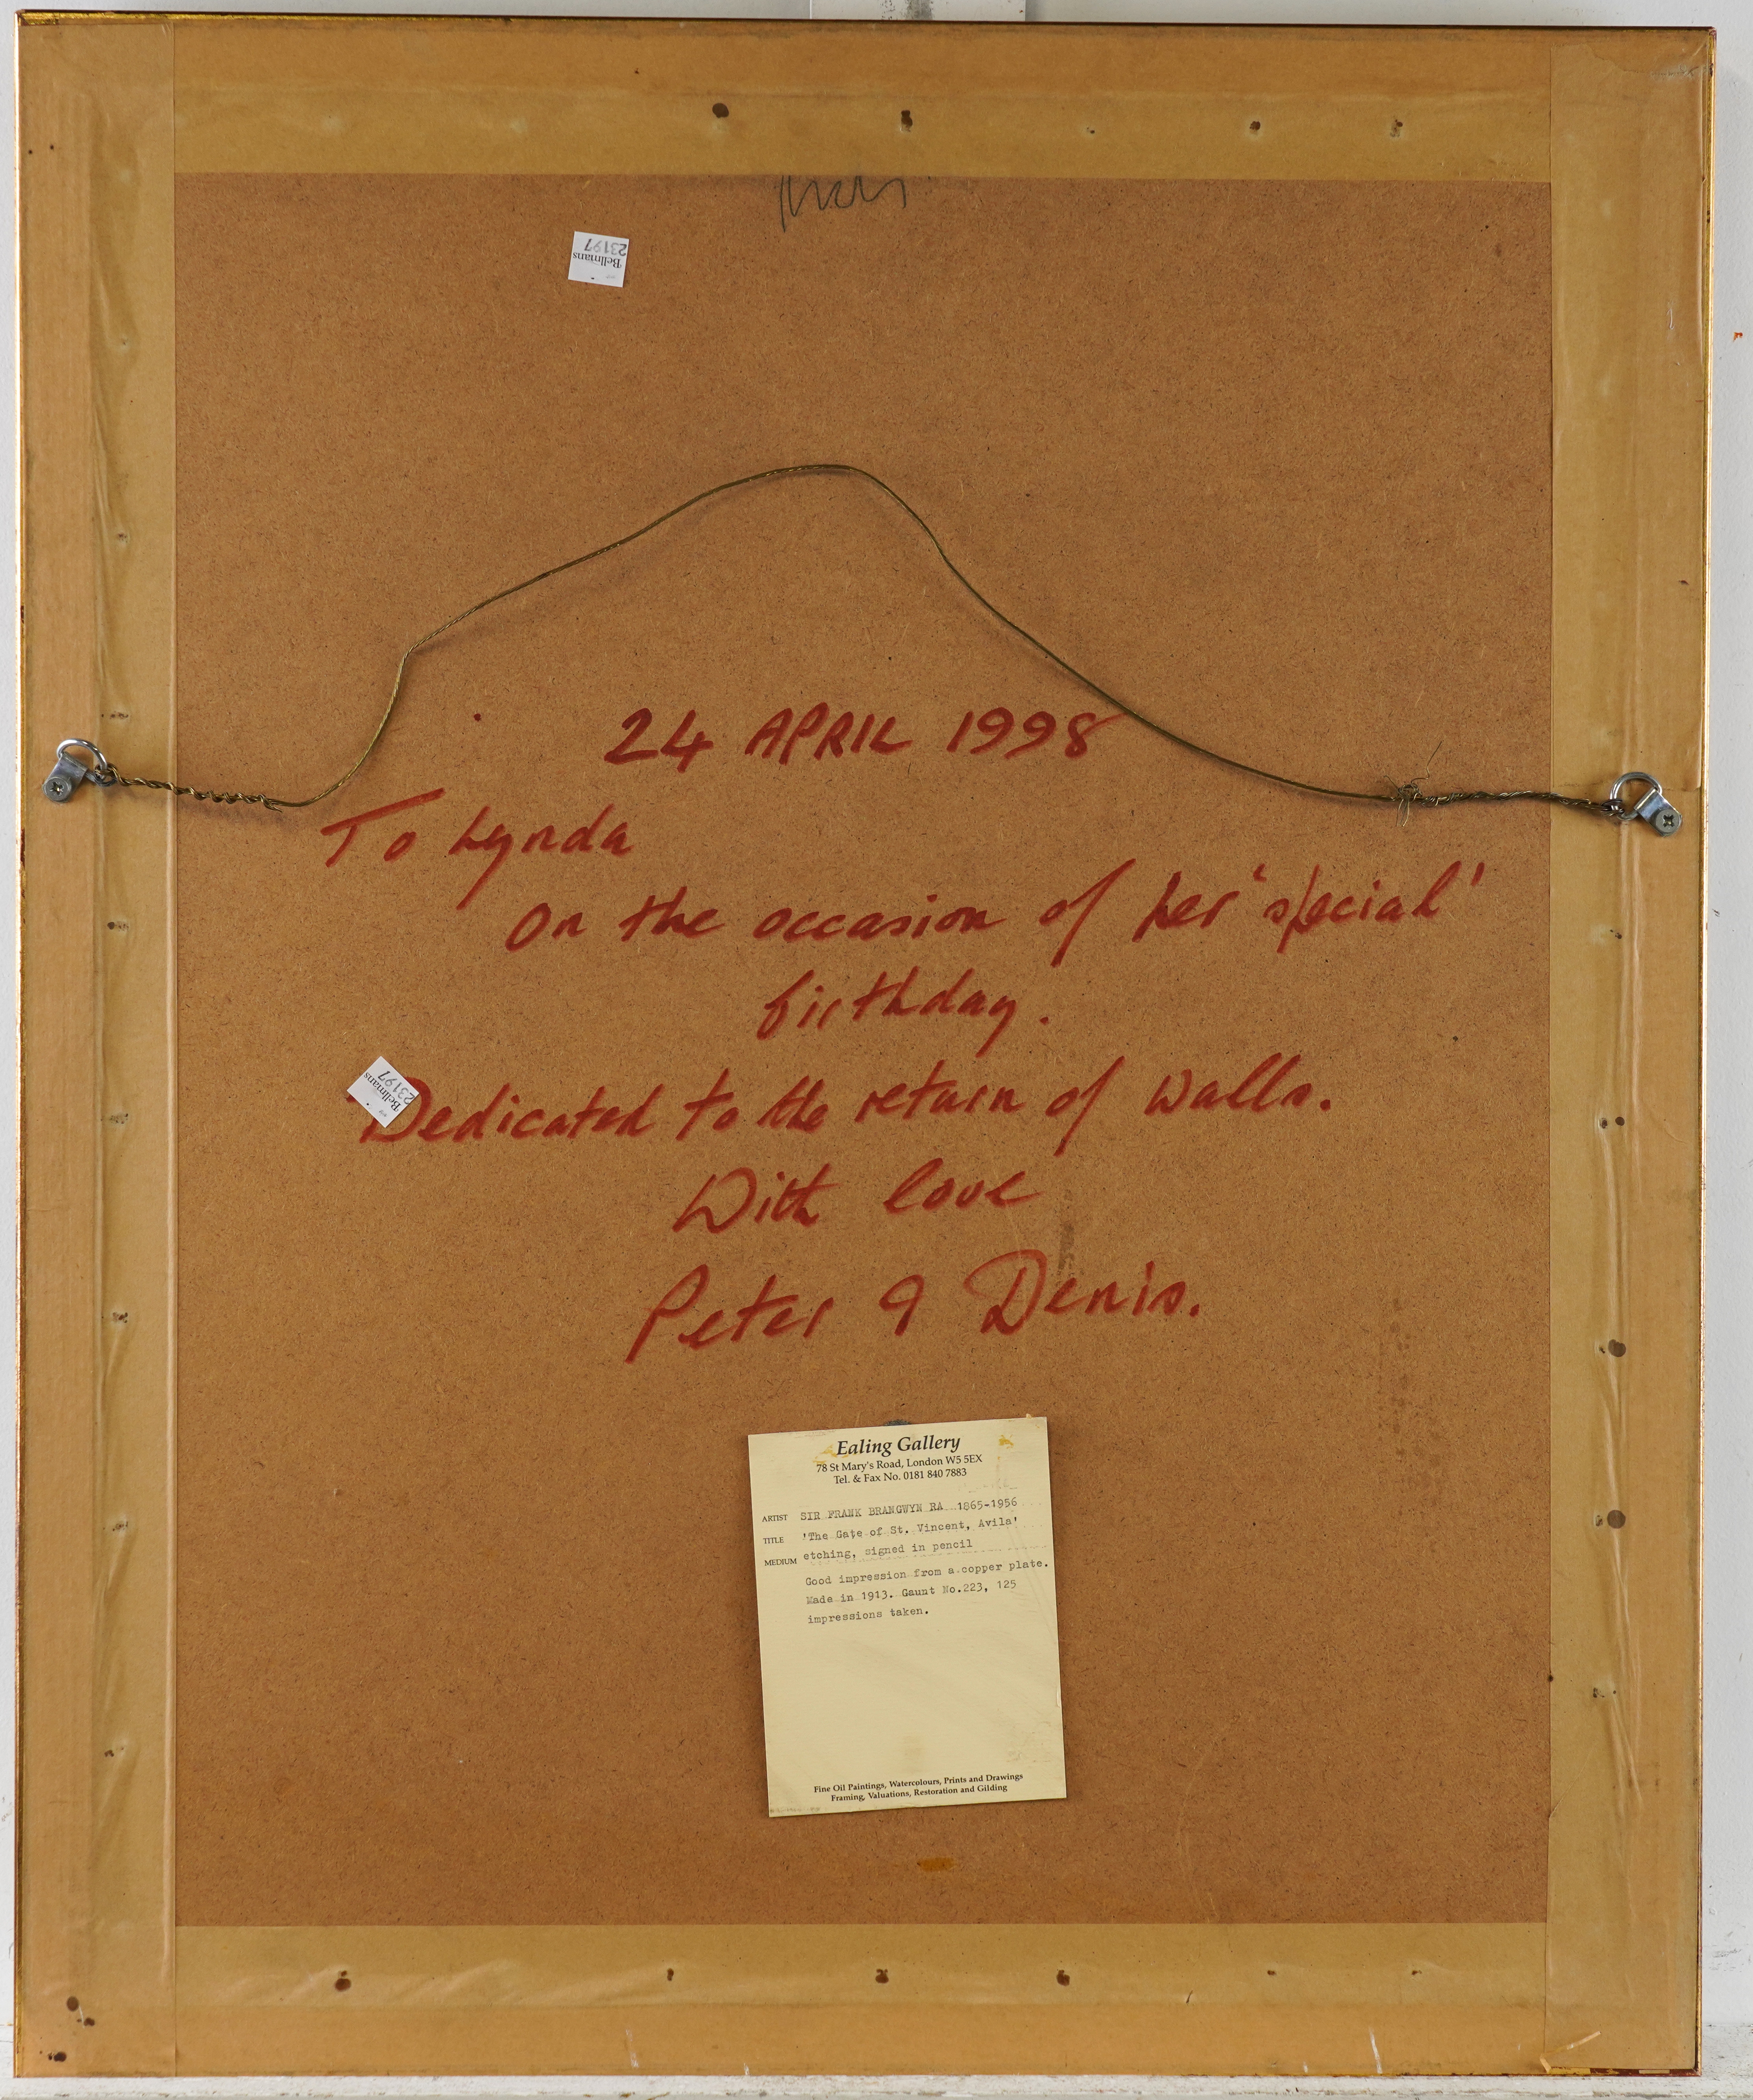 Bellmans
23197
24 APRIL 1998
To Lynda
On the occasion of her 'special'
birthday.
Bellmans
23197
Dedicated to the return of walls.
With love
Peter & Denis.
Ealing Gallery
78 St Mary's Road, London W5 5EX
Tel. & Fax No. 0181 840 7883
ARTIST SIR FRANK BRANGWYN RA 1865-1956
TITLE 'The Gate of St. Vincent, Avila'
MEDIUM etching, signed in pencil
Good impression from a copper plate.
Made in 1913. Gaunt No.223, 125
impressions taken.
Fine Oil Paintings, Watercolours, Prints and Drawings
Framing, Valuations, Restoration and Gilding